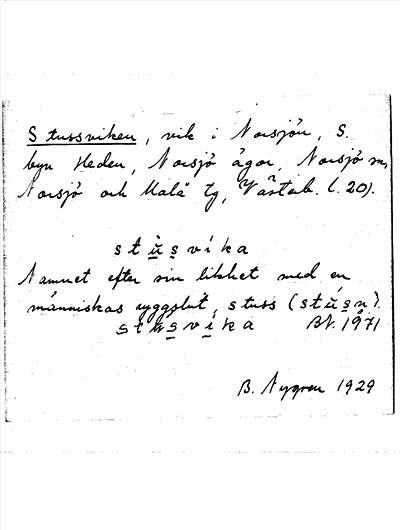 Stussviken, vik i Norsjön, S.
byn Heden, Norsjö ägor, Norsjö sn,
Norsjö och Malå tg, Västerb. l. 20).
stu̠s̠víka
Namnet efter sin likhet med en
människas ryggslut, stuss (stu̠s̠n).
stu̠s̠vi̠ka BN. 1971
B. Nygren 1929